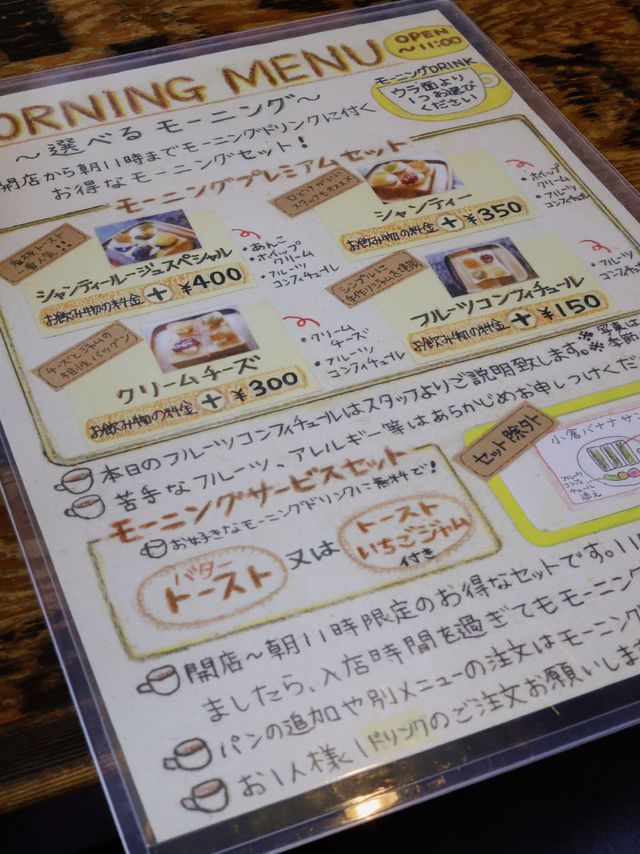 ORNING MENU
OPEN
～11:00
～選べるモーニング～
モーニングDRINK
ウラ面より
1つお選び
ください
開店から朝11時までモーニングドリンクに付く
お得なモーニングセット！
モーニングプレミアムセット
シャンティールージュスペシャル
お飲み物の料金＋¥400
・あんこ
・ホイップ
クリーム
・フルーツ
コンフィチュール
シャンティー
お飲み物の料金＋¥350
・ホイップ
クリーム
・フルーツ
コンフィチュール
クリームチーズ
お飲み物の料金＋¥300
・クリーム
チーズ
・フルーツ
コンフィチュール
フルーツコンフィチュール
お飲み物の料金＋¥150
・フルーツ
コンフィ
本日のフルーツコンフィチュールはスタッフよりご説明致します。
苦手なフルーツ、アレルギー等はあらかじめお申しつけくだ
モーニングサービスセット
お好きなモーニングドリンクに無料で！
バター
トースト
又は
トースト
いちごジャム
付き
セット除外
小倉バナナサ
フルーツ
コンフィ
チュール
添え
開店～朝11時限定のお得なセットです。11
ましたら、入店時間を過ぎてもモーニング
パンの追加や別メニューの注文はモーニン
お1人様1ドリンクのご注文お願いしま